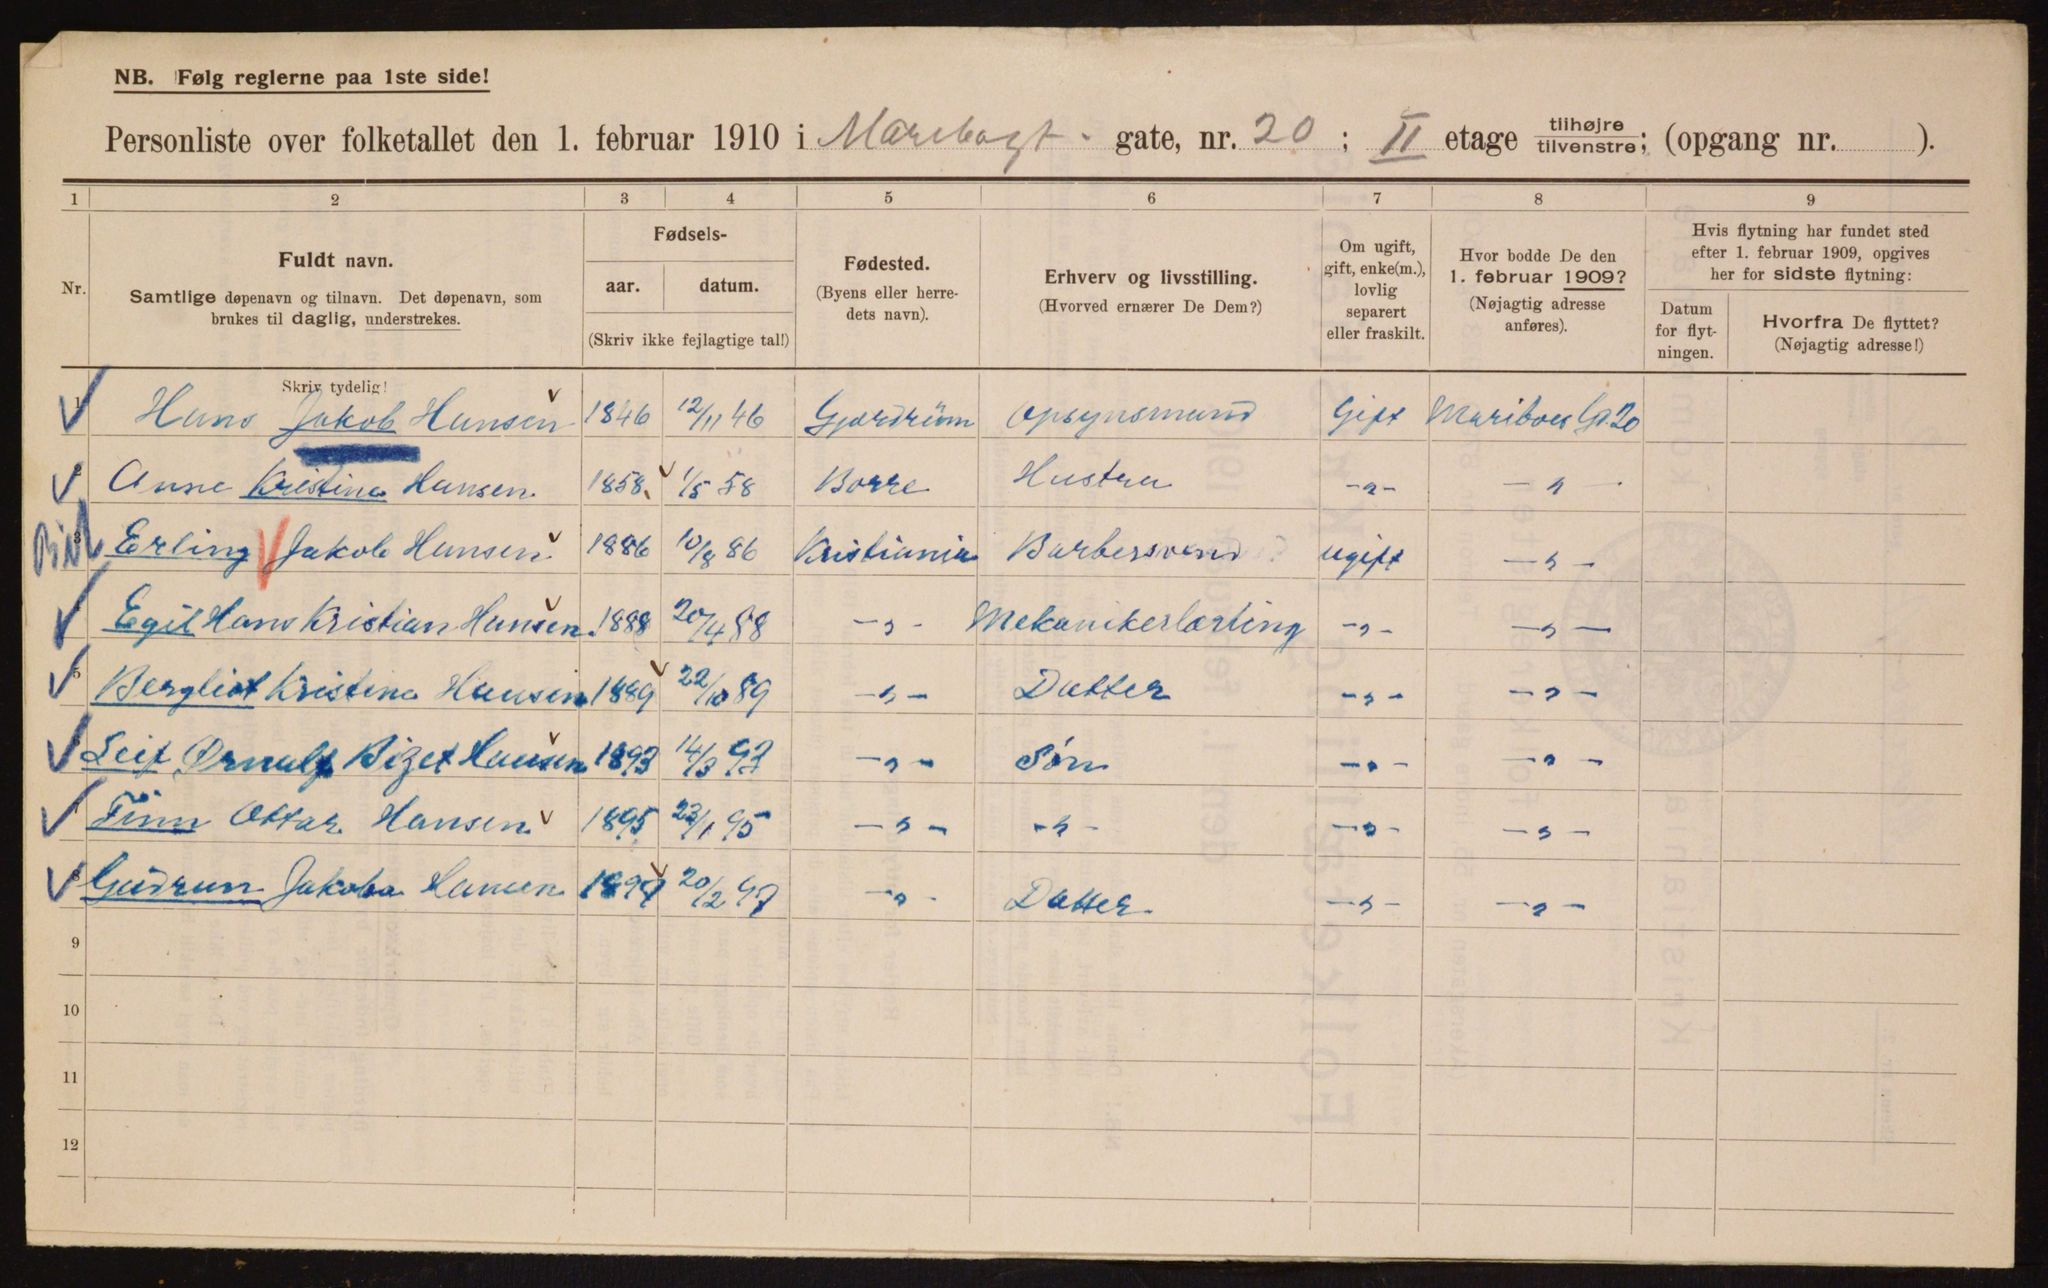 NB. Følg reglerne paa 1ste side!
Personliste over folketallet den 1. februar 1910 i gate, nr. 20; II etage tilhøjre tilvenstre; (opgang nr. ).
1 2 3 4 5 6 7 8 9
Nr.
Fuldt navn.
Samtlige døpenavn og tilnavn. Det døpenavn, som
brukes til daglig, understrekes.
Fødsels-
aar. datum.
(Skriv ikke fejlagtige tal!)
Fødested.
(Byens eller herre-
dets navn).
Erhverv og livsstilling.
(Hvorved ernærer De Dem?)
Om ugift,
gift, enke(m.),
lovlig
separert
eller fraskilt.
Hvor bodde De den
1. februar 1909?
(Nøjagtig adresse
anføres).
Hvis flytning har fundet sted
efter 1. februar 1909, opgives
her for sidste flytning:
Datum
for flyt-
ningen.
Hvorfra De flyttet?
(Nøjagtig adresse!)
Skriv tydelig!
1 Hans Jakob Hansen 1846 12/11 46 Gjerdrum Opsynsmand Gift Mariboes Gt. 20
2 Anne Kristina Hansen 1858 1/5 58 Borre Hustru -"- -"-
3 Erling Jakob Hansen 1886 10/8 86 Kristiania Barbersvend ugift -"-
Egil Hans Kristian Hansen 1888 20/4 88 -"- Mekanikerlærling -"- -"-
5 Bergliot Kristina Hansen 1889 22/10 89 -"- Datter -"- -"-
Leif Ørnulf Bizet Hansen 1893 14/3 93 -"- Søn -"- -"-
Finn Ottar Hansen 1895 23/1 95 -"- -"- -"- -"-
8 Gudrun Jakoba Hansen 1897 20/2 97 -"- Datter -"- -"-
9
10
11
12